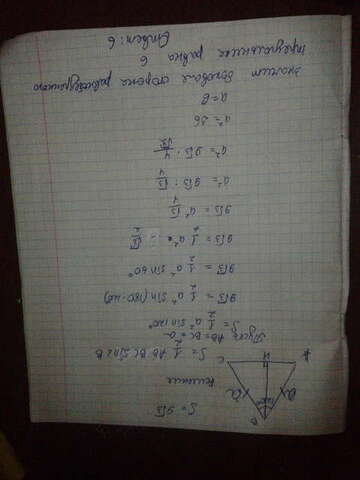 S = 9√3
Решение
S = 1/2 AB·BC sin∠B
Пусть AB=BC=a
S = 1/2 a² sin 120°
9√3 = 1/2 a² sin(180-120)
9√3 = 1/2 a² sin 60°
9√3 = 1/2 a² · √3/2
9√3 = a²√3/4
a² = 9√3 · 4/√3
a² = 36
a = 6
значит боковая сторона равнобедренного
треугольника равна 6
Ответ: 6
B
a
a
A
H
C